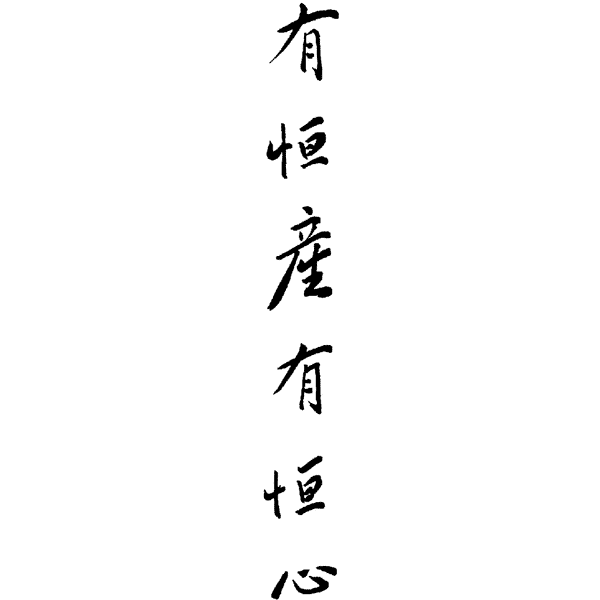 有恒產有恒心